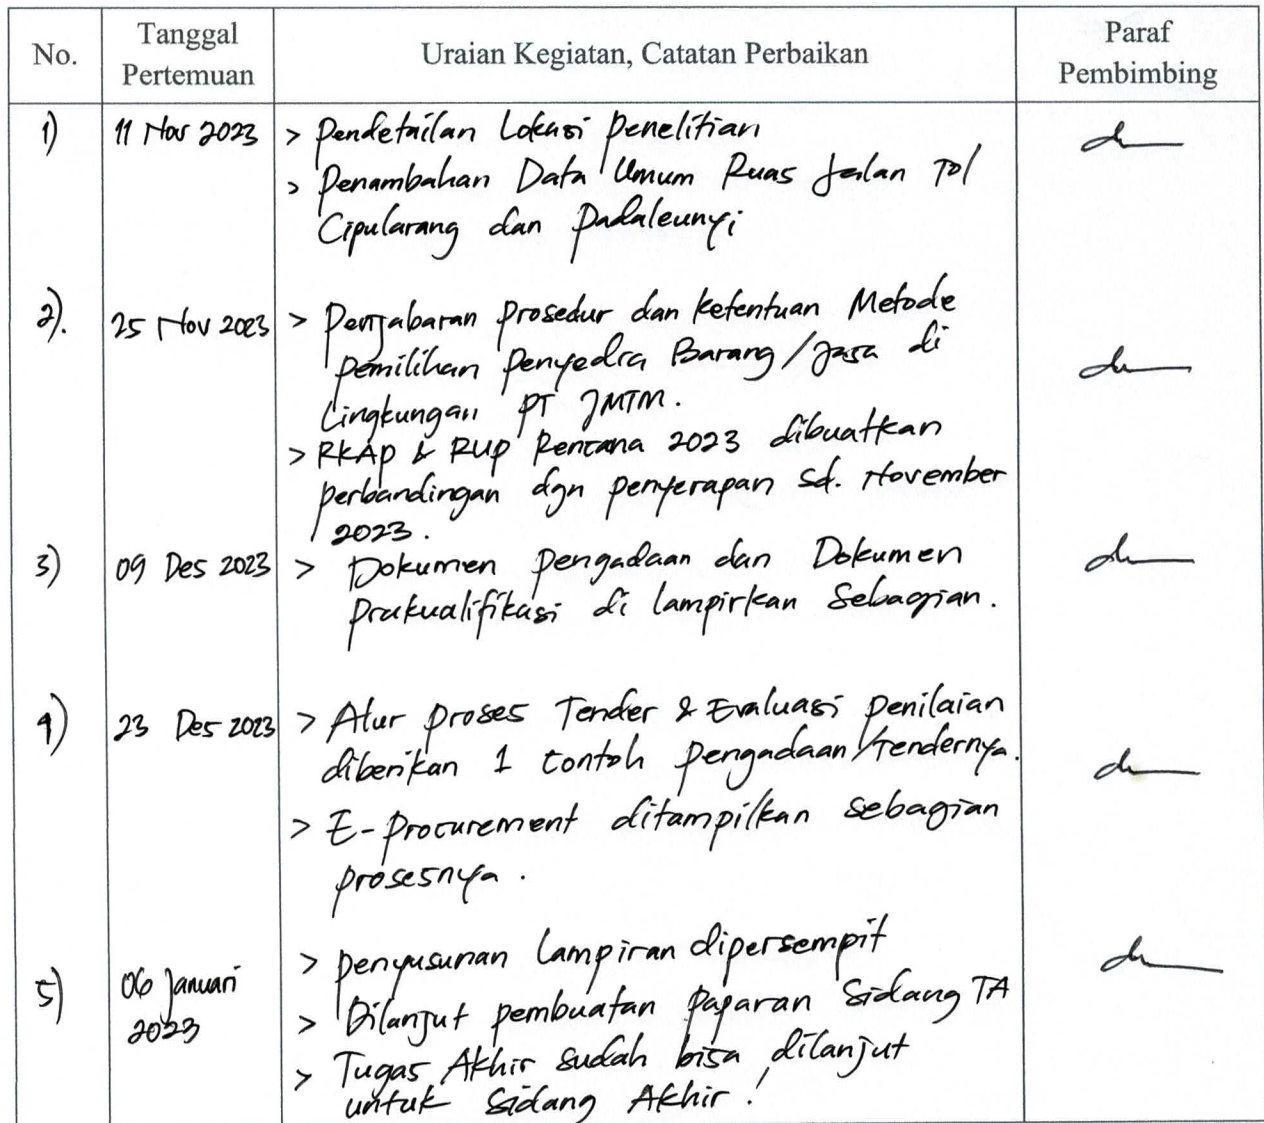 No.
Tanggal
Pertemuan
Uraian Kegiatan, Catatan Perbaikan
Paraf
Pembimbing
1) 11 Nov 2023 > Pendetailan Lokasi Penelitian
> Penambahan Data Umum Ruas Jalan Tol
Cipularang dan Padaleunyi
2). 25 Nov 2023 > Penjabaran Prosedur dan Ketentuan Metode
Pemilihan Penyedia Barang/Jasa di
Lingkungan PT JMTM.
> RKAP & RUP Rencana 2023 dibuatkan
perbandingan dgn penyerapan sd. November
2023.
3) 09 Des 2023 > Dokumen Pengadaan dan Dokumen
Prakualifikasi di lampirkan Sebagian.
4) 23 Des 2023 > Alur Proses Tender & Evaluasi Penilaian
diberikan 1 contoh Pengadaan/Tendernya.
> E-Procurement ditampilkan sebagian
prosesnya.
5) 06 Januari
2023
> Penyusunan Lampiran dipersempit
> Dilanjut pembuatan Paparan Sidang TA
> Tugas Akhir sudah bisa dilanjut
untuk Sidang Akhir!